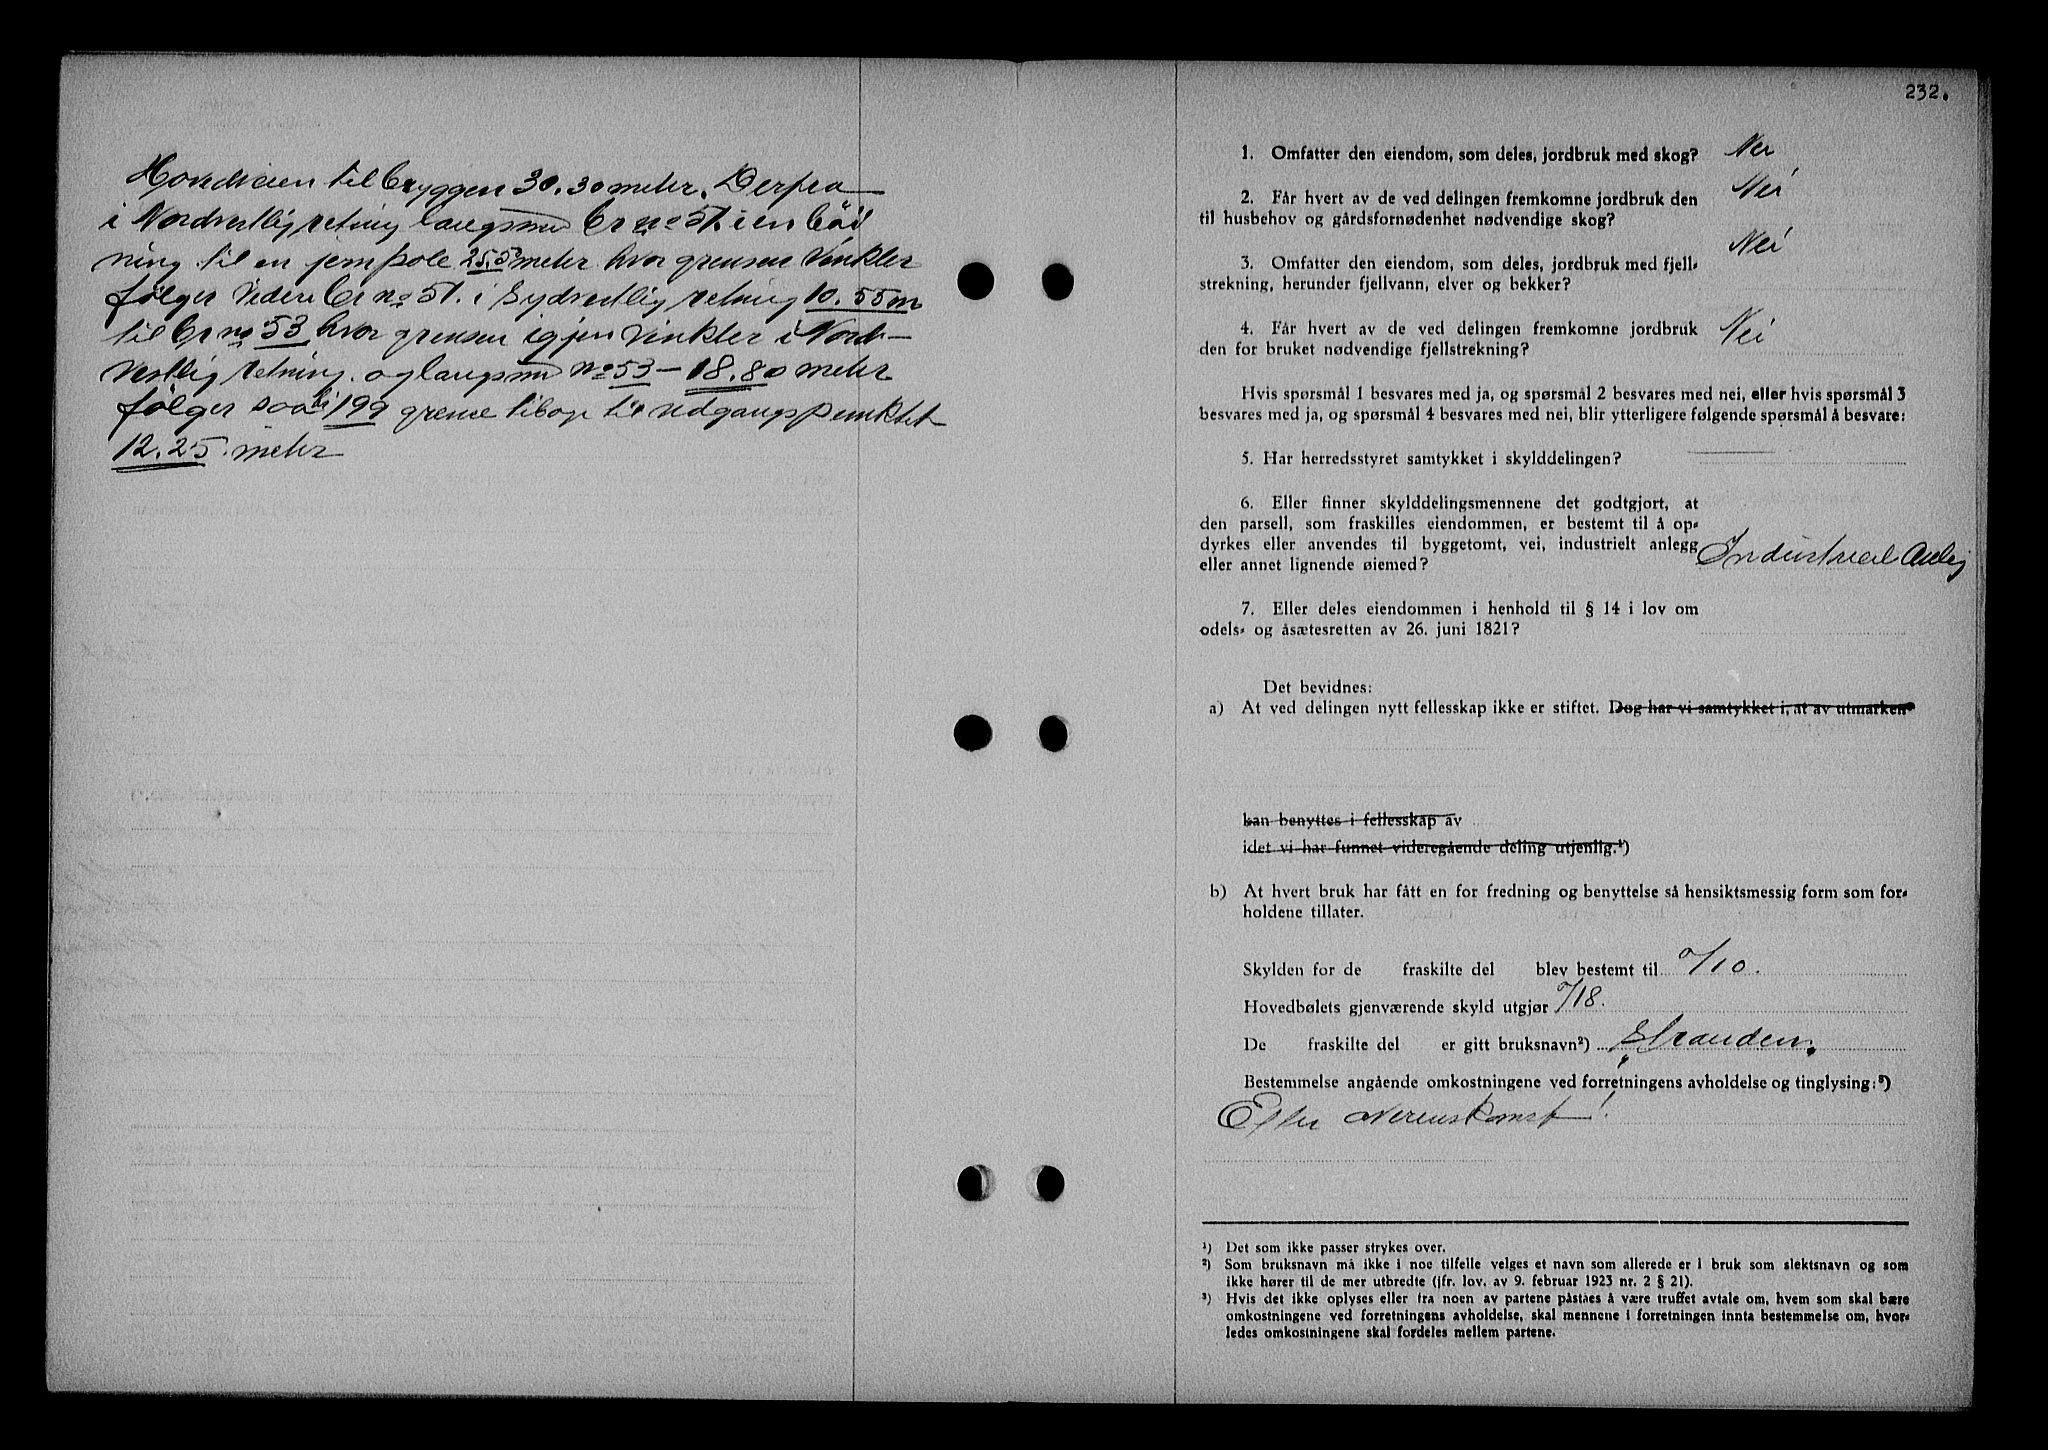 Hovedveien til bryggen 30.30 meter. Derfra
i Nordvestlig retning langsmed Br no 51 i en böi
ning til en jernpole 25.5 meter hvor grensen vinkler
følger videre Br no 51. i Sydvestlig retning 10.55 m
til Br no 53 hvor grensen igjen vinkler i Nord-
vestlig retning. og langsmed no 53 - 18.80 meter
følger saa 199 grense tilbage til udgangspunktet
12.25 meter
232.
1. Omfatter den eiendom, som deles, jordbruk med skog? Nei
2. Får hvert av de ved delingen fremkomne jordbruk den
til husbehov og gårdsfornødenhet nødvendige skog? Nei
3. Omfatter den eiendom, som deles, jordbruk med fjell-
strekning, herunder fjellvann, elver og bekker? Nei
4. Får hvert av de ved delingen fremkomne jordbruk
den for bruket nødvendige fjellstrekning? Nei
Hvis spørsmål 1 besvares med ja, og spørsmål 2 besvares med nei, eller hvis spørsmål 3
besvares med ja, og spørsmål 4 besvares med nei, blir ytterligere følgende spørsmål å besvare:
5. Har herredsstyret samtykket i skylddelingen?
6. Eller finner skylddelingsmennene det godtgjort, at
den parsell, som fraskilles eiendommen, er bestemt til å op-
dyrkes eller anvendes til byggetomt, vei, industrielt anlegg
eller annet lignende øiemed? Industrieel Anleg
7. Eller deles eiendommen i henhold til § 14 i lov om
odels- og åsætesretten av 26. juni 1821?
Det bevidnes:
a) At ved delingen nytt fellesskap ikke er stiftet. Dog har vi samtykket i, at av utmarken
kan benyttes i fellesskap av
idet vi har funnet videregående deling utjenlig.¹)
b) At hvert bruk har fått en for fredning og benyttelse så hensiktsmessig form som for-
holdene tillater.
Skylden for de fraskilte del blev bestemt til 0/10.
Hovedbølets gjenværende skyld utgjør 0/18.
De fraskilte del er gitt bruksnavn²) „Stranden"
Bestemmelse angående omkostningene ved forretningens avholdelse og tinglysing:³)
Efter Overenskomst!
¹) Det som ikke passer strykes over.
²) Som bruksnavn må ikke i noe tilfelle velges et navn som allerede er i bruk som slektsnavn og som
ikke hører til de mer utbredte (jfr. lov. av 9. februar 1923 nr. 2 § 21).
³) Hvis det ikke oplyses eller fra noen av partene påståes å være truffet avtale om, hvem som skal bære
omkostningene ved forretningens avholdelse, skal mennene i forretningen innta bestemmelse om, hvor-
ledes omkostningene skal fordeles mellem partene.